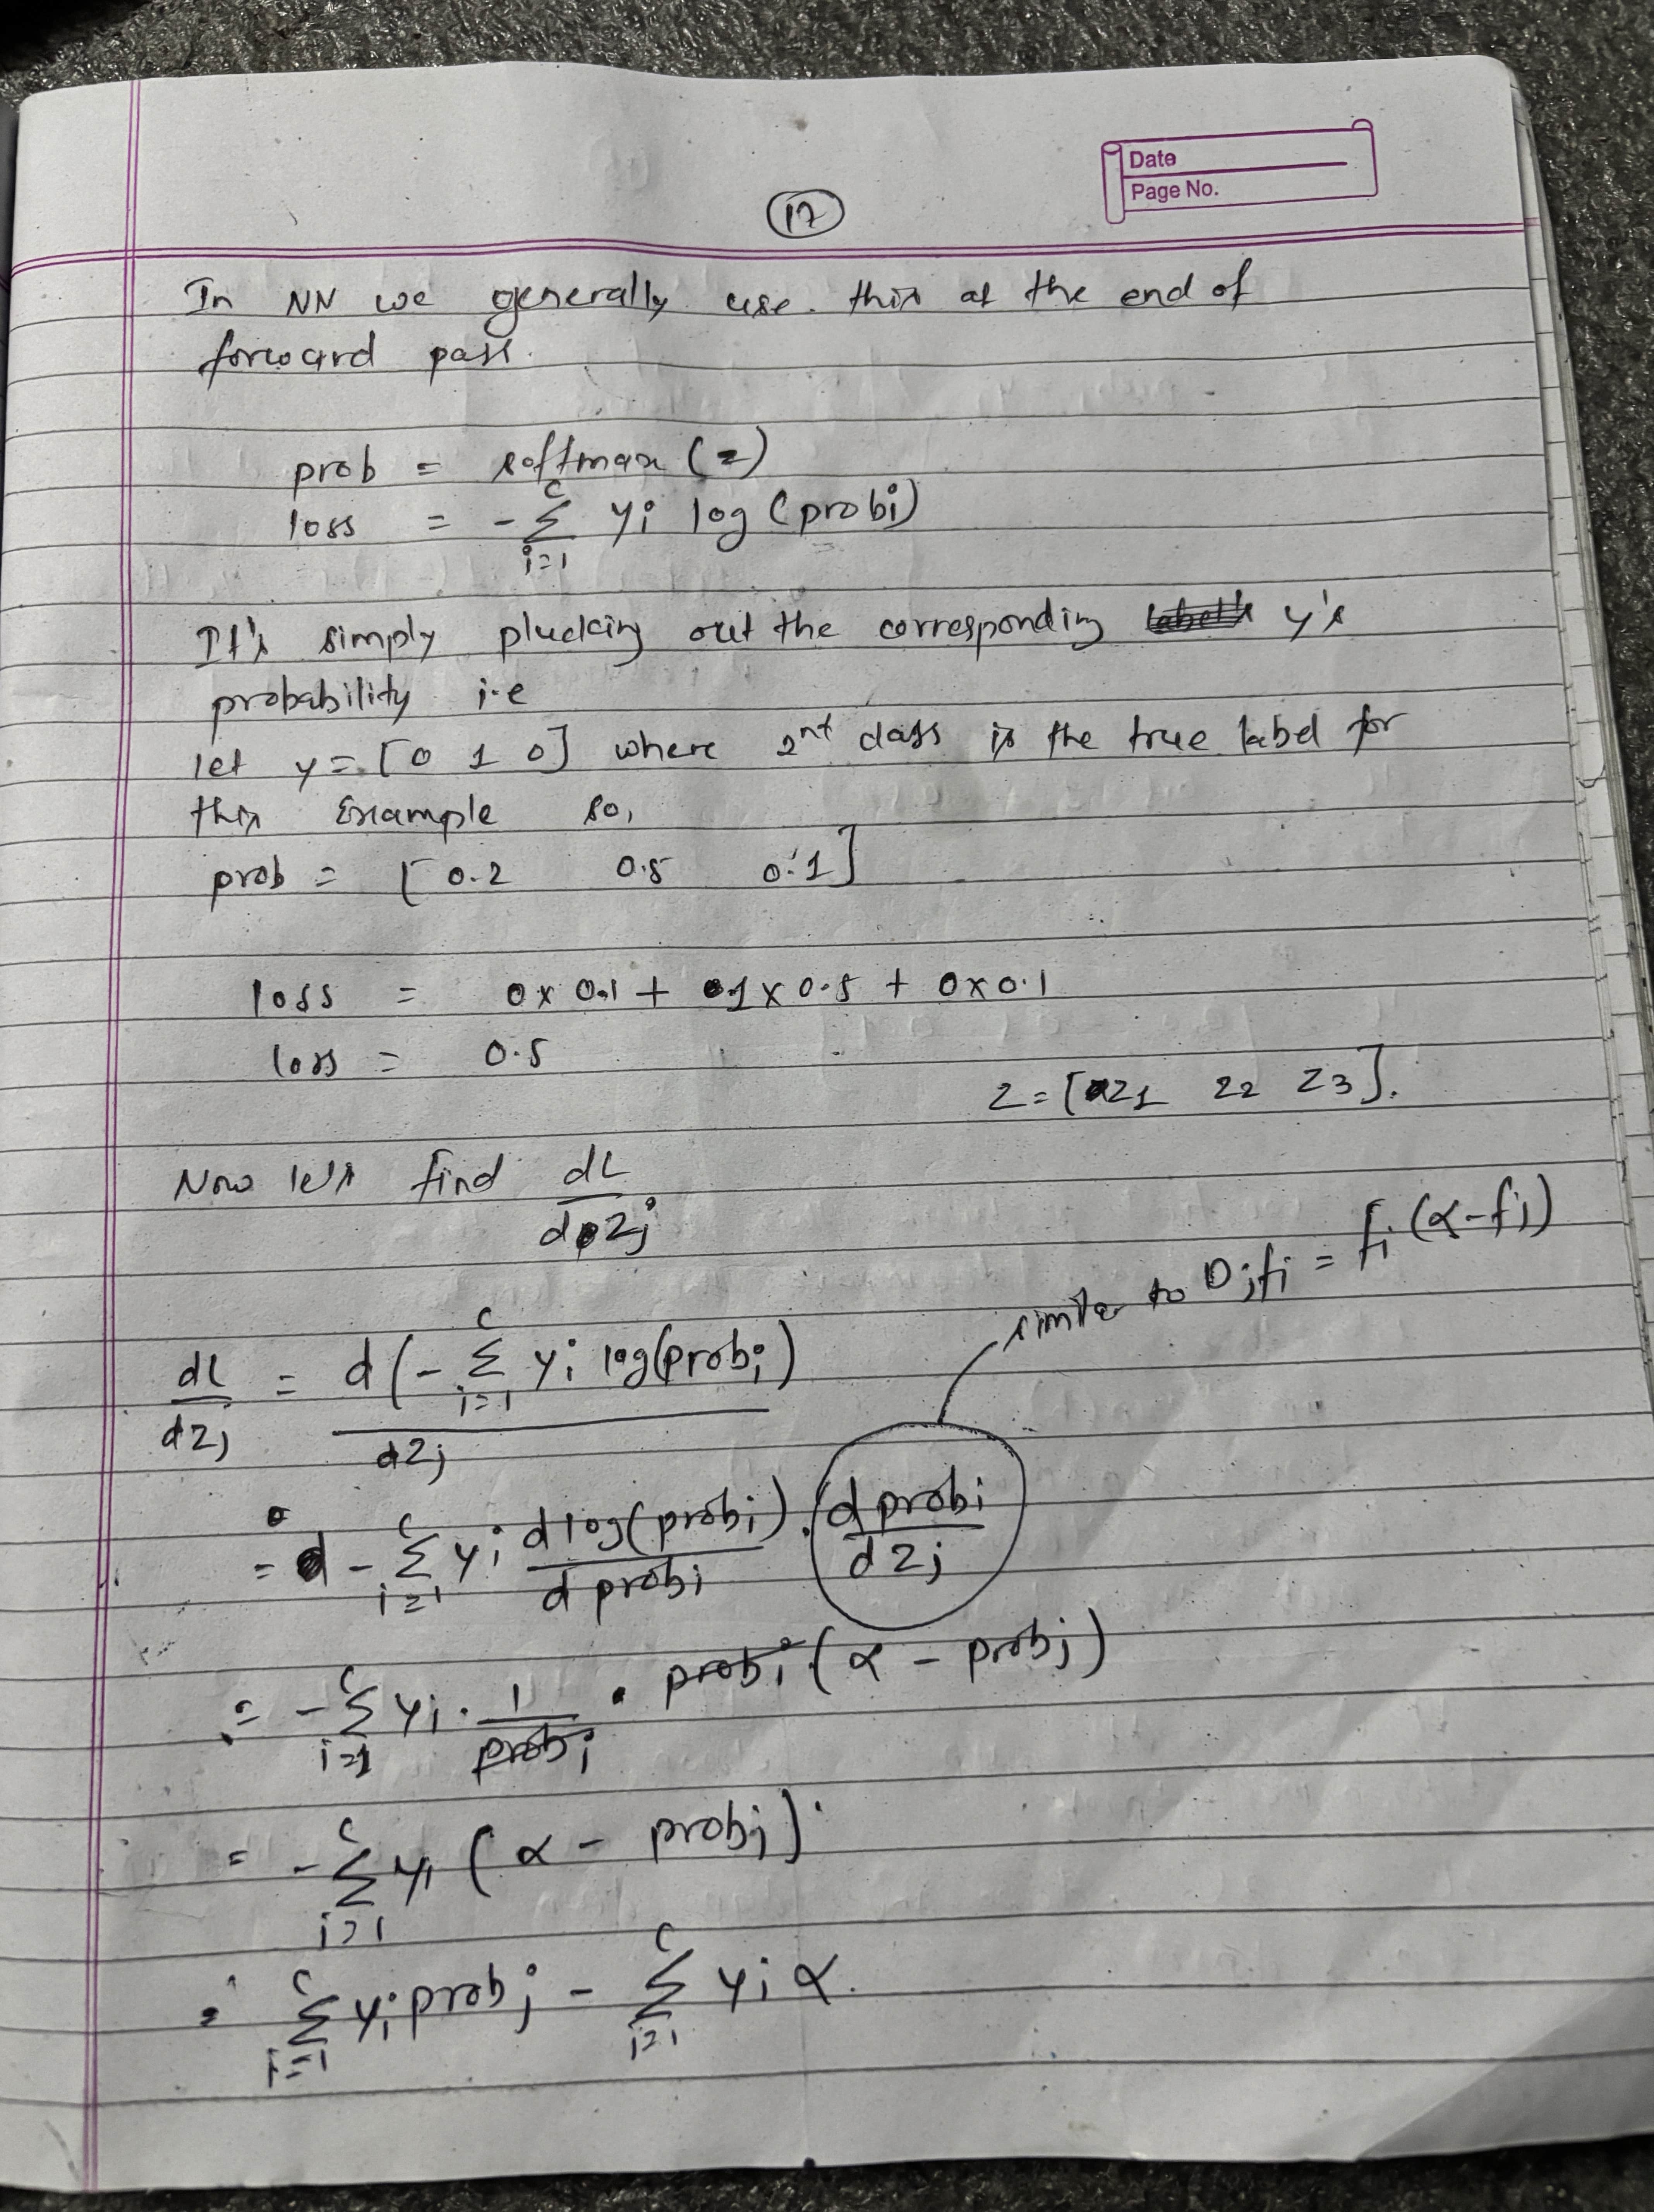 Date
Page No.
17
In NN we generally use this at the end of
forward pass.
prob = softmax (z)
loss = - Σ_{i=1}^{C} yi log (probi)
It's simply plucking out the corresponding y's
probability i.e
let y = [0 1 0] where 2nt class is the true label for
this Example so,
prob = [0.2 0.5 0.1]
loss = 0x0.1 + 1x0.5 + 0x0.1
loss = 0.5
z = [z1 z2 z3].
Now let's find dL/dzj
similar to Djfi = fi (α-fj)
dL/dzj = d(- Σ_{i=1}^{C} yi log(probi)/dzj
= - Σ_{i=1}^{C} yi dlog(probi)/dprobi . dprobi/dzj
= - Σ_{i=1}^{C} yi . 1/probi . probi (α - probj)
= - Σ_{i=1}^{C} yi (α - probj)
= Σ_{i=1}^{C} yi probj - Σ_{i=1}^{C} yi α.